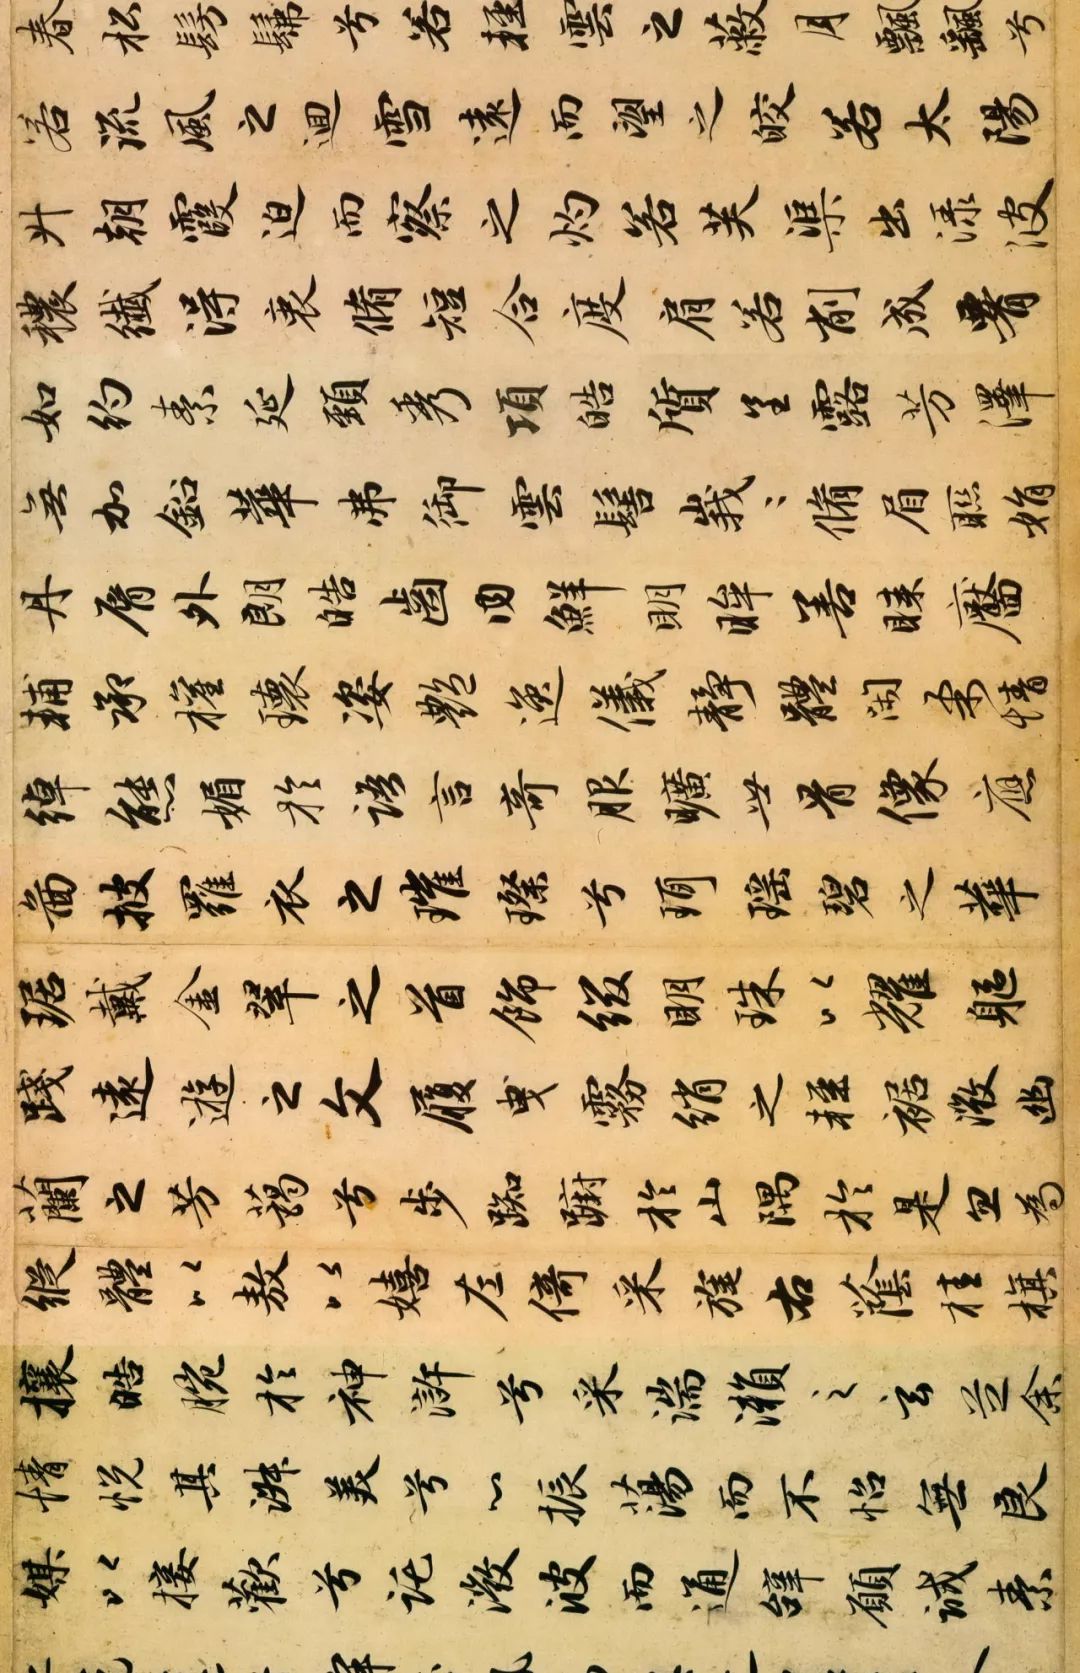 春松髣髴兮若輕雲之蔽月飄飖兮
若流風之迴雪遠而望之皎若太陽
升朝霞迫而察之灼若芙渠出渌波
穠纖得衷脩短合度肩若削成署
如約素延頸秀項皓質呈露芳澤
無加鉛華弗御雲髻峩〻脩眉聮娟
丹脣外朗皓齒內鮮明眸善睞靨
輔承權瓌姿艶逸儀靜體閑柔情
綽態媚於語言奇服曠世骨像應
圖披羅衣之璀璨兮珥瑶碧之華
琚戴金翠之首飾綴明珠以耀軀
踐遠遊之文履曳霧綃之輕裾微幽
蘭之芳藹兮步踟躕於山隅於是忽焉
縱體以敖以嬉左倚采旄右蔭桂旗
攘皓腕於神滸兮采湍瀨之玄芝余
情悅其淑美兮心振蕩而不怡無良
媒以接歡兮託微波而通辭願誠素